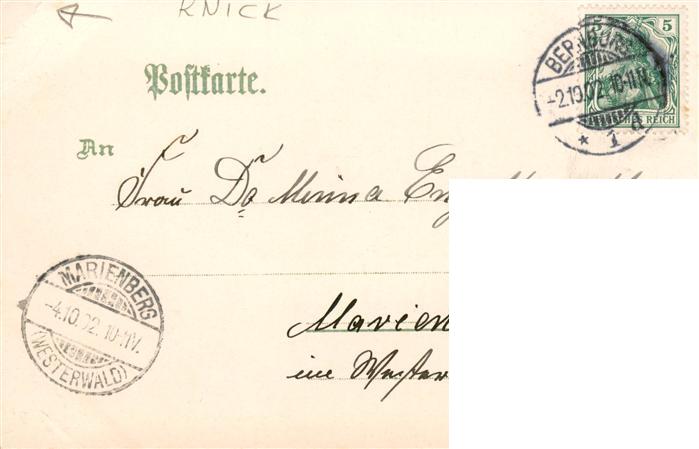 KNICK
5
BERNBURG
-2.10.02. 10-11 V.
* 1 d
DEUTSCHES REICH
Postkarte.
An
Frau Dr Minna
MARIENBERG
-4.10.02. 10-11V.
(WESTERWALD)
Marien
im Wester